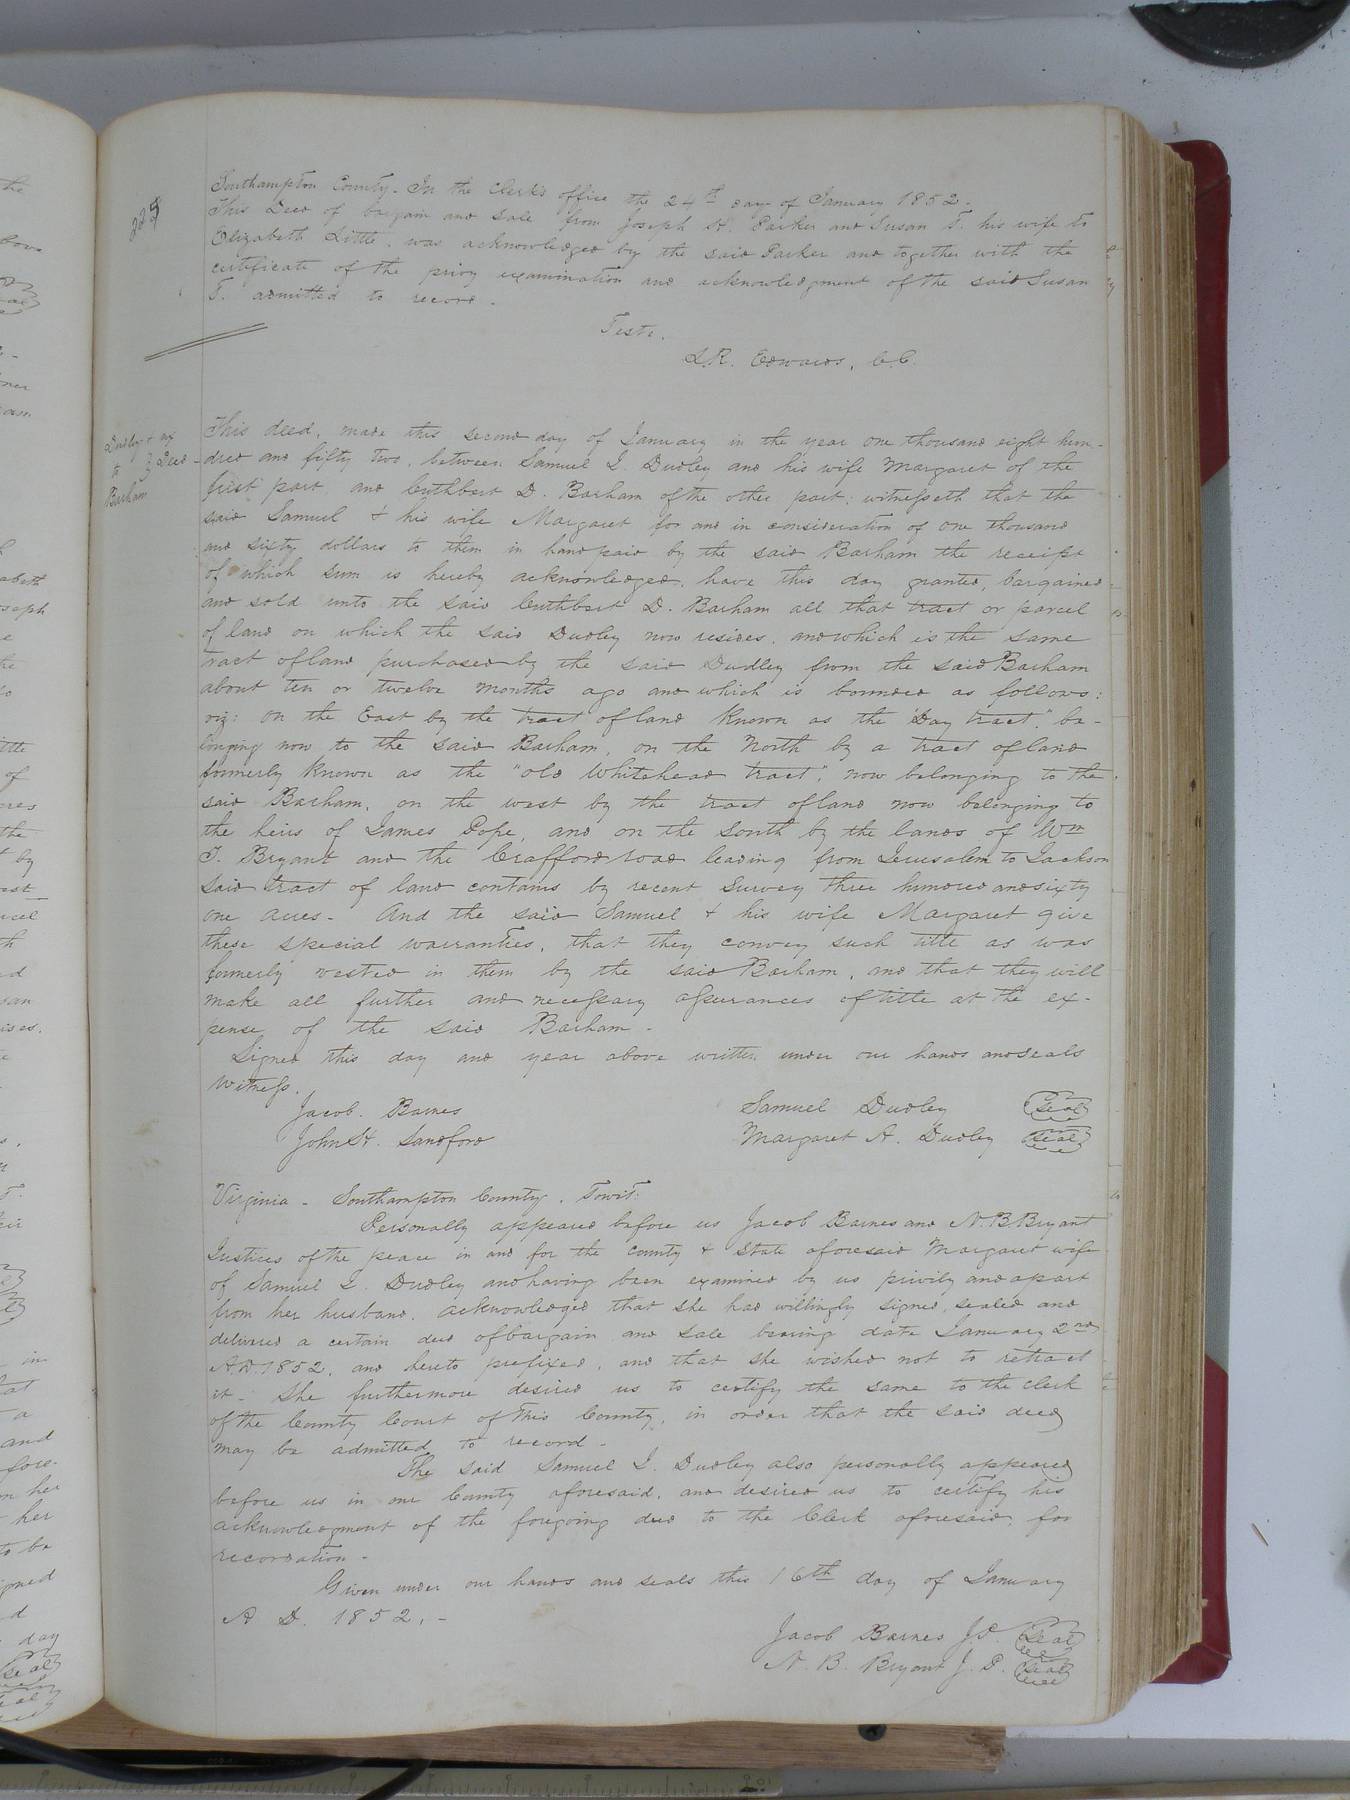 225
Southampton County. In the Clerk's office the 24th day of January 1852.
This Deed of bargain and sale from Joseph H. Parker and Susan T. his wife to
Elizabeth Little, was acknowledged by the said Parker and together with the
certificate of the privy examination and acknowledgment of the said Susan
T. admitted to record.
Teste.
L.R. Edwards, C.C.
Dudley & ux
to } Deed
Barham
This deed, made this second day of January in the year one thousand eight hun-
dred and fifty two, between Samuel I. Dudley and his wife Margaret of the
first part and Cuthbert D. Barham of the other part: witnesseth that the
said Samuel & his wife Margaret for and in consideration of one thousand
and sixty dollars to them in hand paid by the said Barham the receipt
of which sum is hereby acknowledged, have this day granted, bargained
and sold unto the said Cuthbert D. Barham all that tract or parcel
of land on which the said Dudley now resides, and which is the same
tract of land purchased by the said Dudley from the said Barham
about ten or twelve months ago and which is bounded as follows:
viz: on the East by the tract of land known as the "Day tract." be-
longing now to the said Barham, on the North by a tract of land
formerly known as the "old Whitehead tract", now belonging to the
said Barham, on the west by the tract of land now belonging to
the heirs of James Pope, and on the South by the lands of Wm
T. Bryant and the Crafford road leading from Jerusalem to Jackson
said tract of land contains by recent survey three hundred and sixty
one acres - And the said Samuel & his wife Margaret give
these special warranties, that they convey such title as was
formerly vested in them by the said Barham, and that they will
make all further and necessary assurances of title at the ex-
pense of the said Barham -
Signed this day and year above written under our hands and seals
Witness.
Jacob. Barnes Samuel Dudley Seal
John H. Sandford Margaret A. Dudley Seal
Virginia - Southampton County. Towit:
Personally appeared before us Jacob Barnes and N. B Bryant
Justices of the peace in and for the county & State aforesaid Margaret wife
of Samuel I. Dudley and having been examined by us privily and apart
from her husband, acknowledged that she had willingly signed, sealed and
delivered a certain deed of bargain and sale bearing date January 2nd
A.D. 1852, and hereto prefixed, and that she wished not to retract
it - She furthermore desired us to certify the same to the clerk
of the County Court of this County, in order that the said deed
may be admitted to record -
The said Samuel I. Dudley also personally appeared
before us in our County aforesaid, and desired us to certify his
acknowledgment of the foregoing deed to the Clerk aforesaid, for
recordation -
Given under our hands and seals this 16th day of January
A D. 1852. -
Jacob Barnes J.P. Seal
N. B. Bryant J. P. Seal